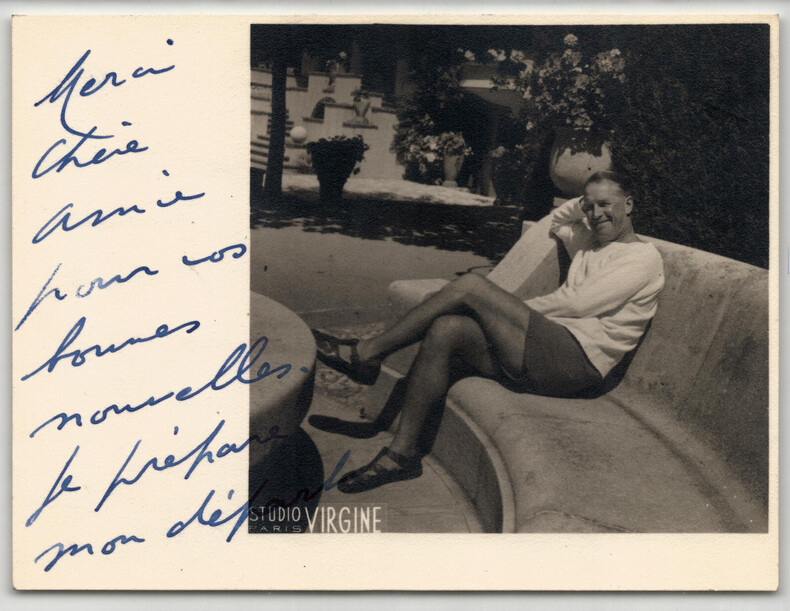 Merci
Chère
amie
pour vos
bonnes
nouvelles.
Je prépare
mon départ
STUDIO VIRGINE
PARIS